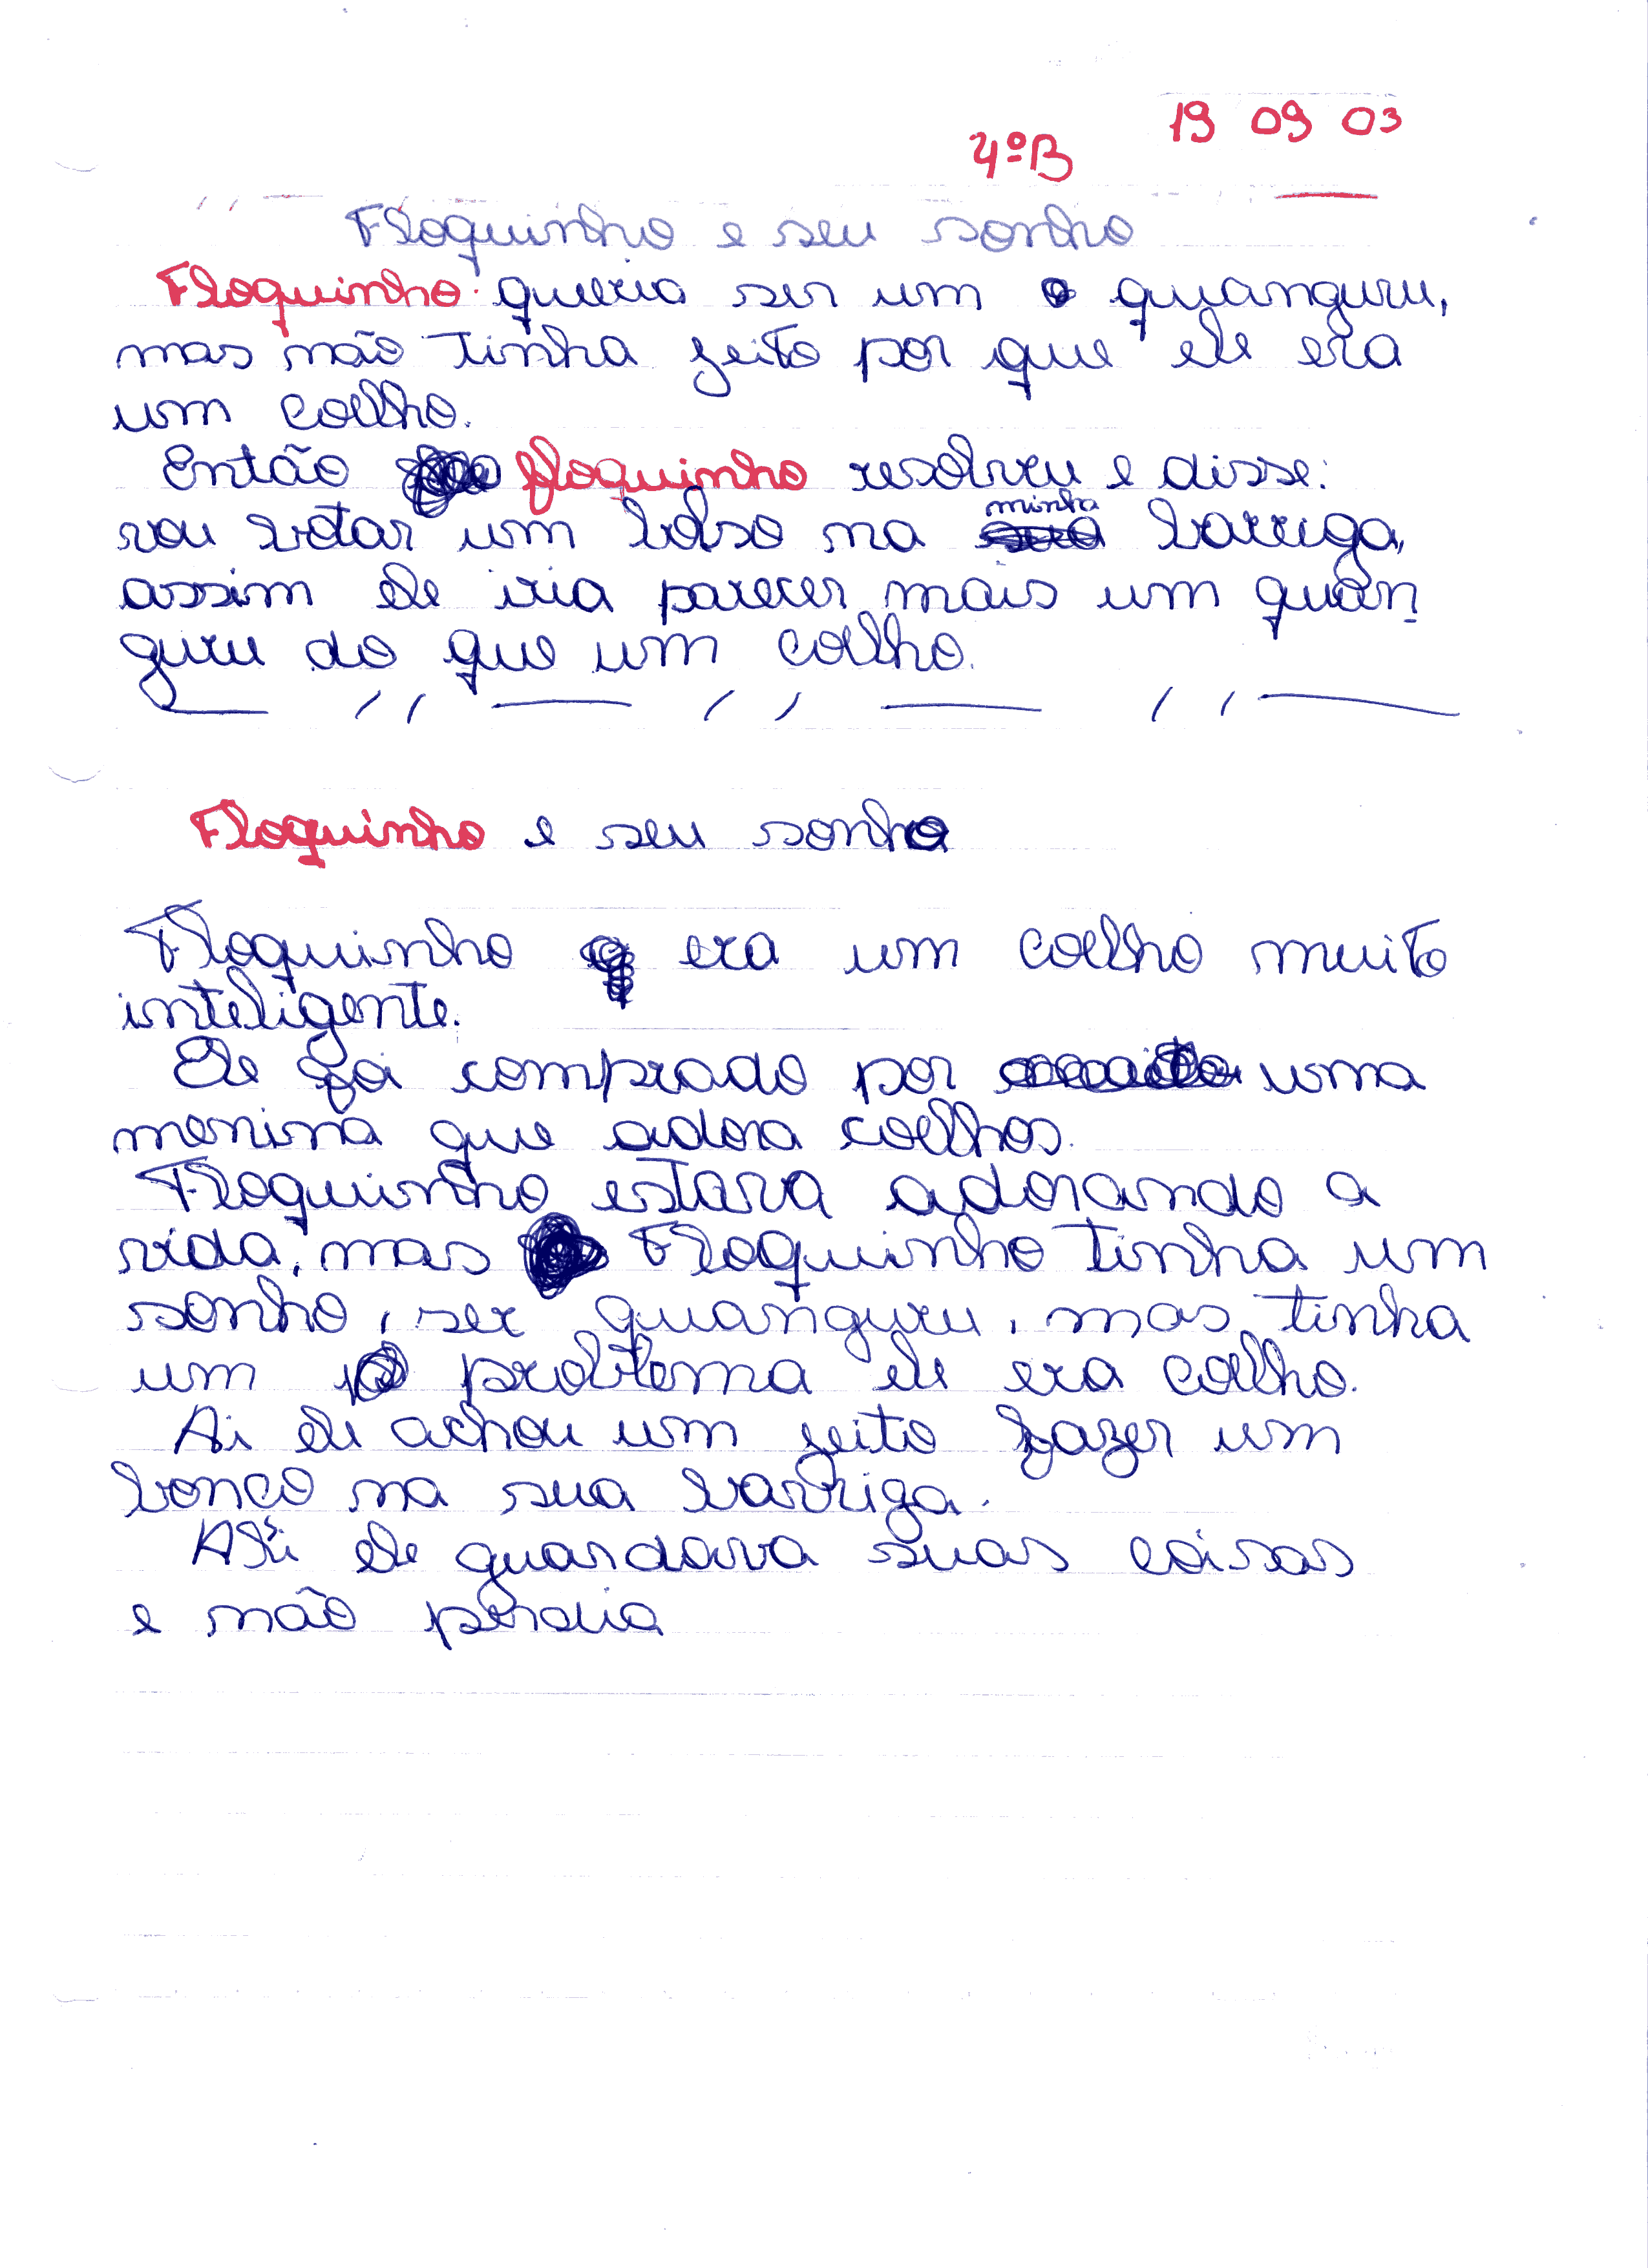 19 09 03
4ºB
Floquinho e seu sonho
Floquinho queria ser um quanguru,
mas não tinha jeito por que ele era
um coelho.
Então floquinho resolveu e disse:
minha
vou botar um bolso na barriga,
assim ele iria parecer mais um quan
guru do que um coelho.
Floquinho e seu sonho
Floquinho era um coelho muito
inteligente.
Ele foi comprado por uma
menina que adora coelhos.
Floquinho estava adorando a
vida, mas Floquinho tinha um
sonho, ser quanguru, mas tinha
um problema ele era coelho.
Ai ele achou um jeito fazer um
na sua barriga.
ele guardava suas coisas
e não perdia